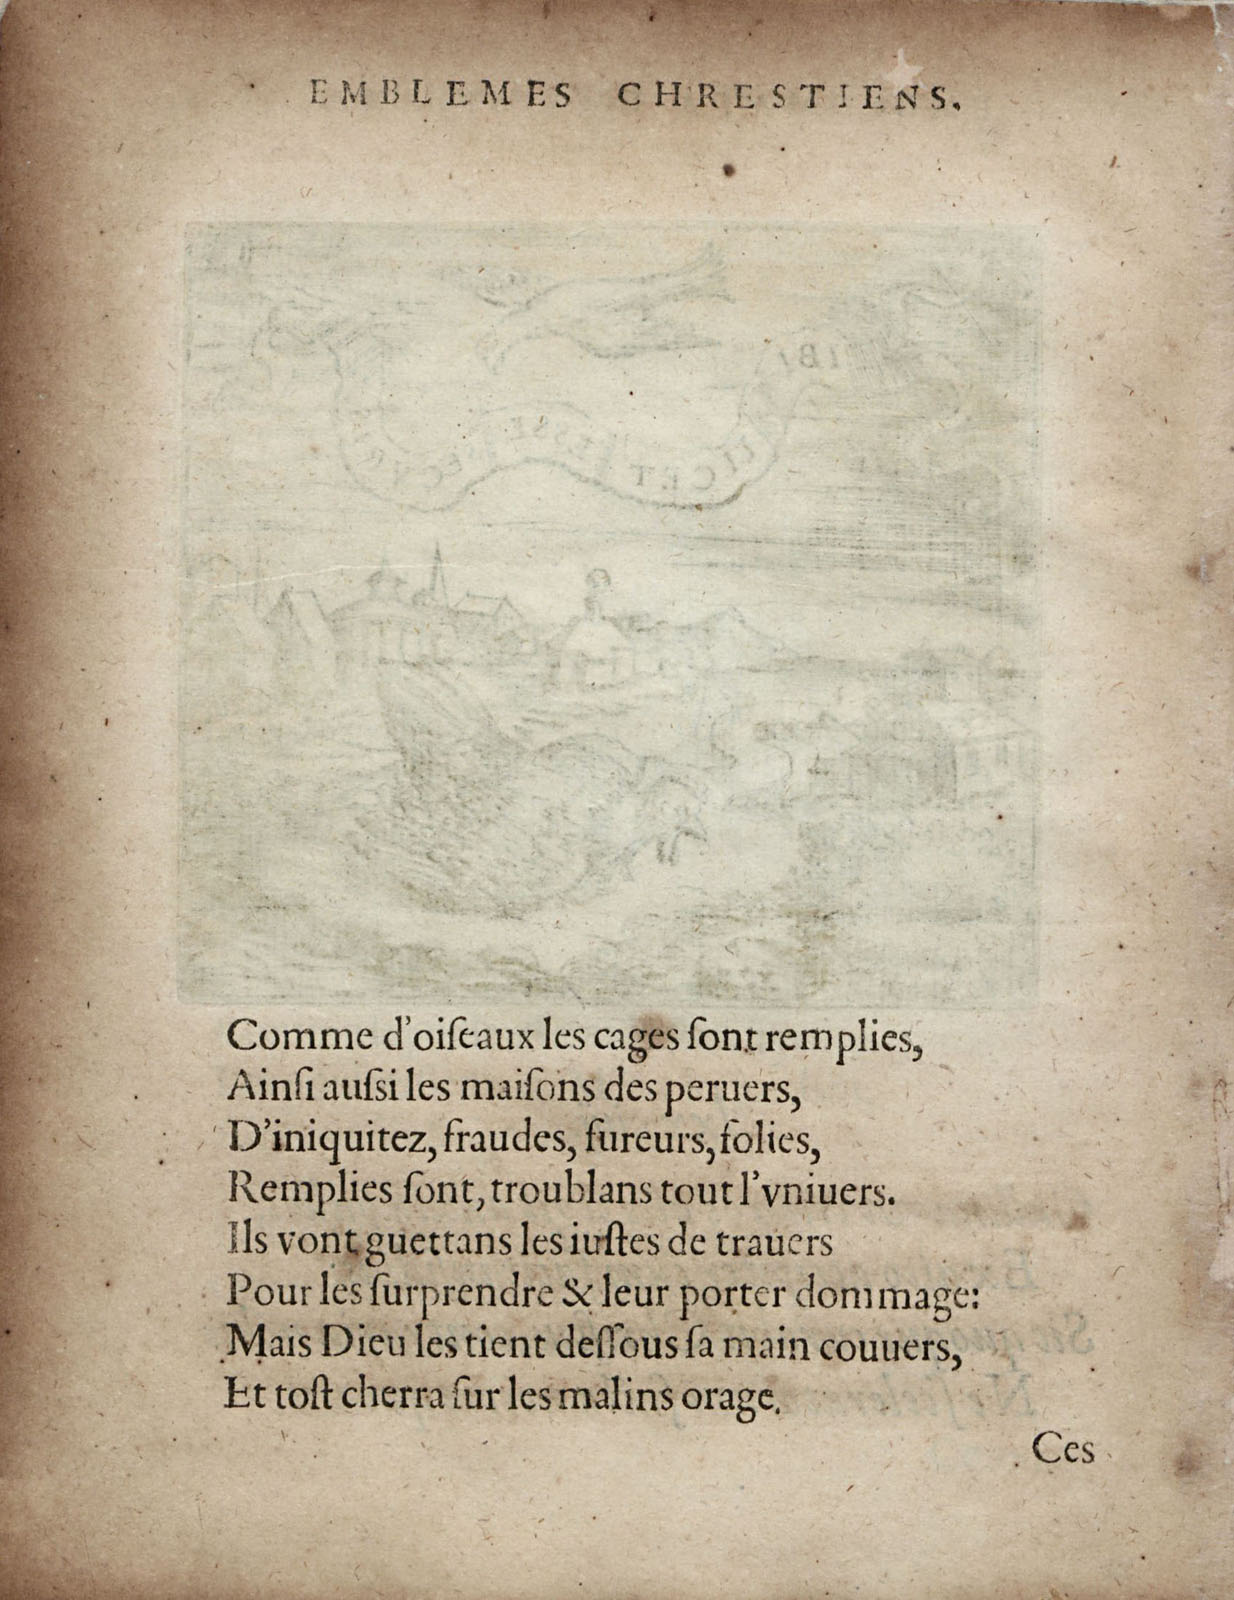 EMBLEMES CHRESTIENS.
Comme d'oiſeaux les cages ſont remplies,
Ainſi auſsi les maiſons des peruers,
D'iniquitez, fraudes, fureurs, folies,
Remplies ſont, troublans tout l'vniuers.
Ils vont guettans les iuſtes de trauers
Pour les ſurprendre & leur porter dommage:
Mais Dieu les tient deſſous ſa main couuers,
Et toſt cherra ſur les malins orage.
Ces